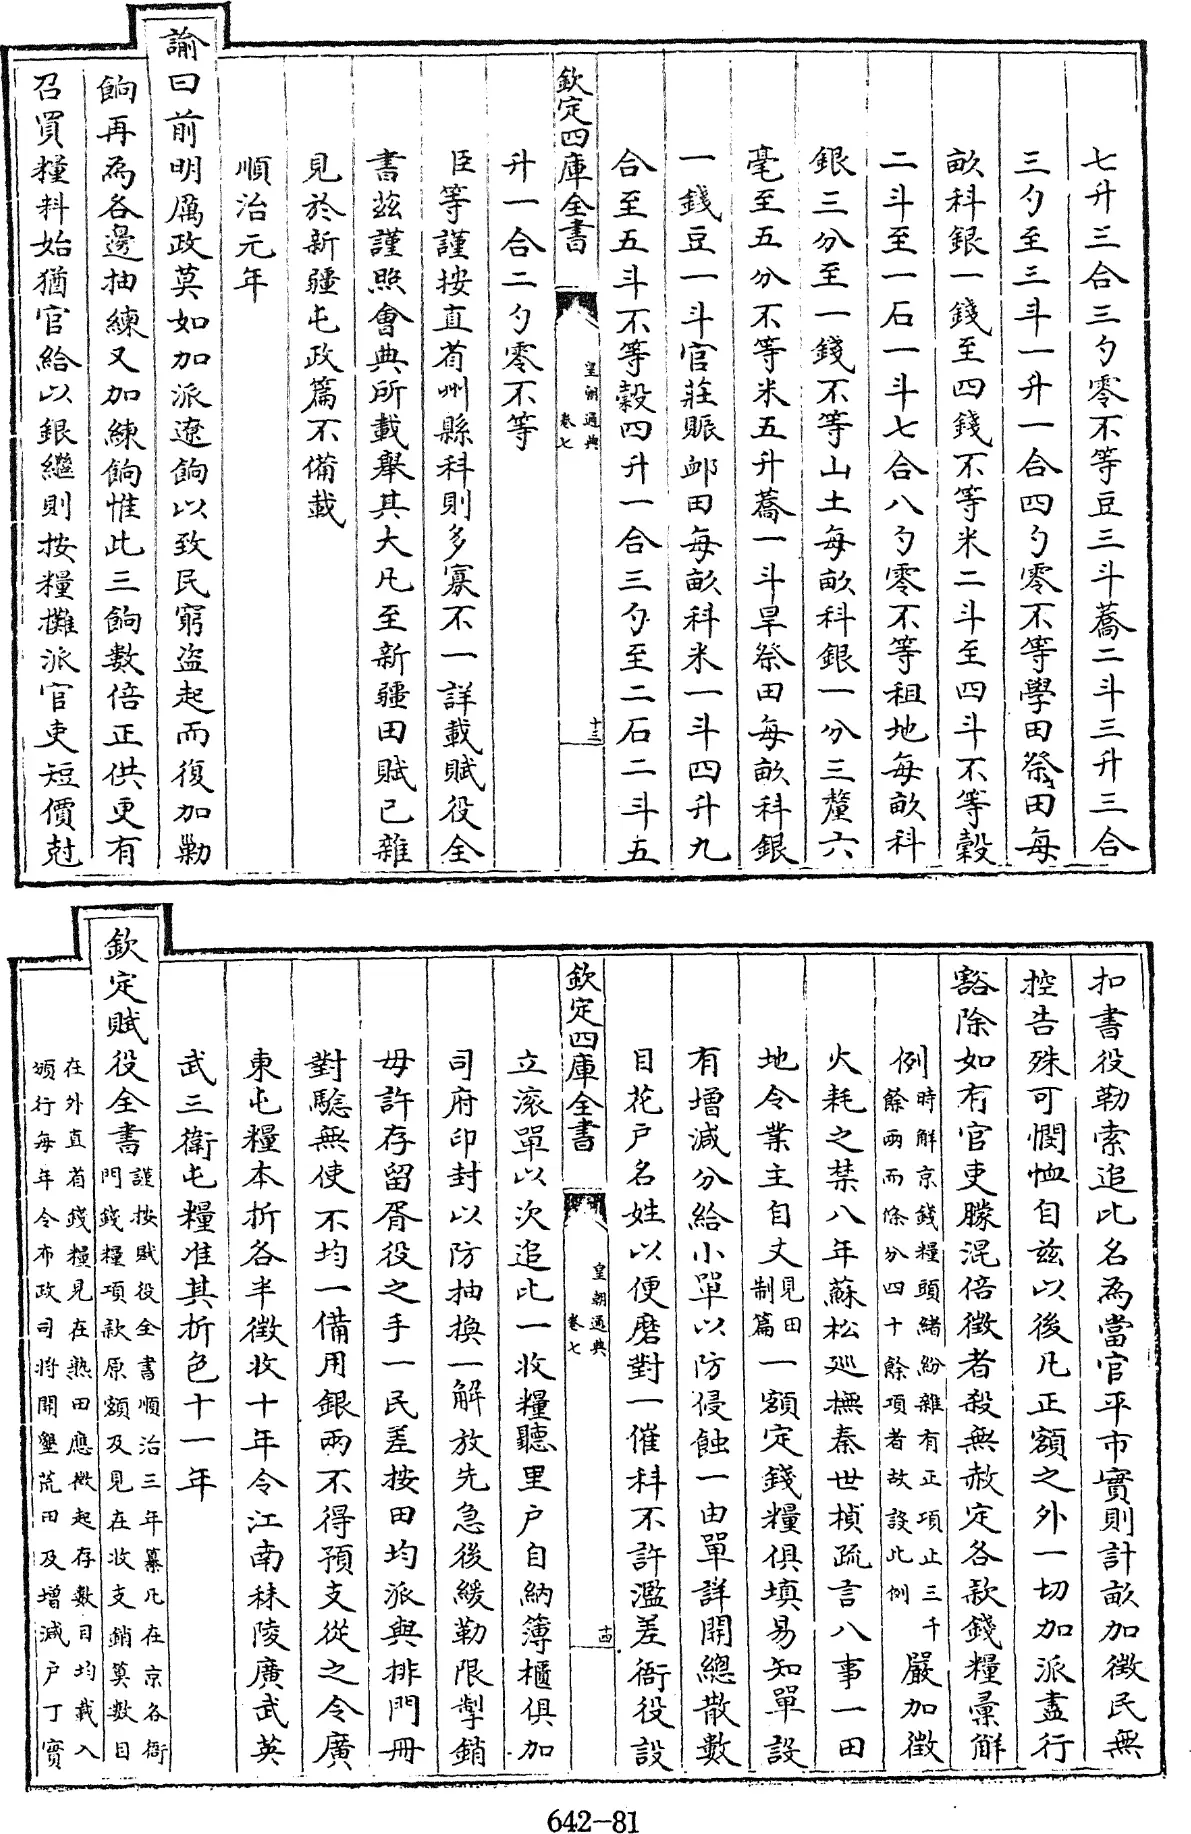 七升三合三勺零不等豆三斗蕎二斗三升三合
三勺至三斗一升一合四勺零不等學田祭田每
畝科銀一錢至四錢不等米二斗至四斗不等穀
二斗至一石一斗七合八勺零不等租地每畝科
銀三分至一錢不等山土每畝科銀一分三釐六
毫至五分不等米五升蕎一斗旱祭田每畝科銀
一錢豆一斗官莊賑䘏田每畝科米一斗四升九
合至五斗不等穀四升一合三勺至二石二斗五
欽定四庫全書
皇朝通典
卷七
十三
升一合二勺零不等
臣等謹按直省州縣科則多寡不一詳載賦役全
書茲謹照會典所載舉其大凡至新疆田賦已雜
見於新疆屯政篇不備載
順治元年
諭曰前明厲政莫如加派遼餉以致民窮盗起而復加勦
餉再為各邊抽練又加練餉惟此三餉數倍正供更有
召買糧料始猶官給以銀繼則按糧攤派官吏短價尅
扣書役勒索追比名為當官平市實則計畝加徵民無
控告殊可憫恤自茲以後凡正額之外一切加派盡行
豁除如有官吏朦混倍徵者殺無赦定各款錢糧彚解
例時解京錢糧頭緒紛雜有正項止三千
餘兩而條分四十餘項者故設此例嚴加徵
火耗之禁八年蘇松廵撫秦世楨疏言八事一田
地令業主自丈見田
制篇一額定錢糧俱填易知單設
有增減分給小單以防侵蝕一由單詳開總散數
目花戶名姓以便磨對一催科不許濫差衙役設
欽定四庫全書
皇朝通典
卷七
十四
立滚單以次追比一收糧聽里戶自納簿櫃俱加
司府印封以防抽換一解放先急後緩勒限掣銷
毋許存留胥役之手一民差按田均派與排門冊
對驗無使不均一備用銀兩不得預支從之令廣
東屯糧本折各半徵收十年令江南秣陵廣武英
武三衛屯糧准其折色十一年
欽定賦役全書謹按賦役全書順治三年纂凡在京各衙
門錢糧項款原額及見在收支銷算數目
在外直省錢糧見在熟田應徴起存數目均載入
頒行每年令布政司將開墾荒田及增減戶丁實
642-81